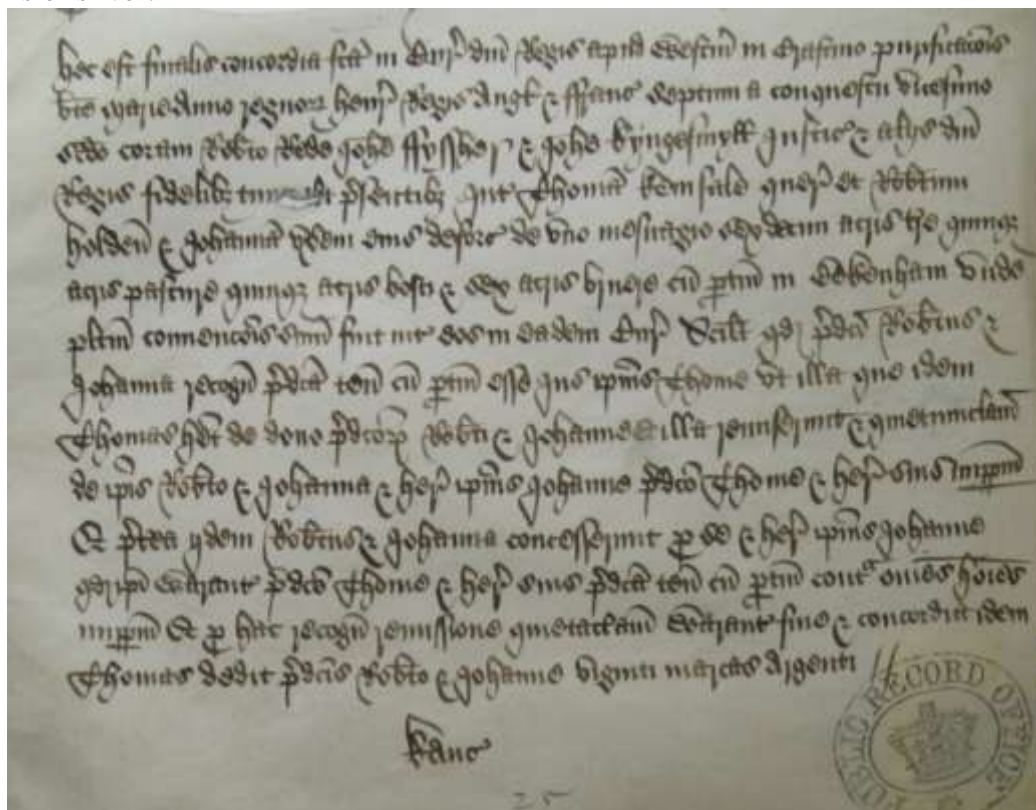 hec est finalis concordia fcta in Cur dni Regis apud Westm in Crastino purificacois
bte Marie Anno regnorz henr Regis Angl & ffranc septimi a conquestu vicesimo
scdo coram Robto Rede Johe ffyssher & Johe kyngesmyll Justic & alijs dni
Regis fidelibz tunc ibi psentibz Int Thomam kempsale quer et Robtum
holden & Johannam vxem eius deforc de vno mesuagio sexdecim acris tre quinqz
acris pasture quinqz acris bosci & sex acris bruere cu ptin in Bekenham vnde
pltm convencois sum fuit int eos in eadem Cur Scilt qd pdci Robtus &
Johanna recogn pdca ten cu ptin esse jus ipius Thome vt illa que idem
Thomas het de dono pdcorz Robti & Johanne et illa remiserunt & quietumclam
de ipis Robto & Johanna & her ipius Johanne pdco Thome & her suis imppm
Et ptea ijdem Robtus & Johanna concesserunt p se & her ipius Johanne
qd ipi Warant pdco Thome & her suis pdca ten cu ptin contra omes hoies
imppm Et p hac recogn remissione quietaclam Warant fine & concordia idem
Thomas dedit pdcis Robto & Johanne viginti marcas Argenti
kanc
PUBLIC RECORD OFFICE
25